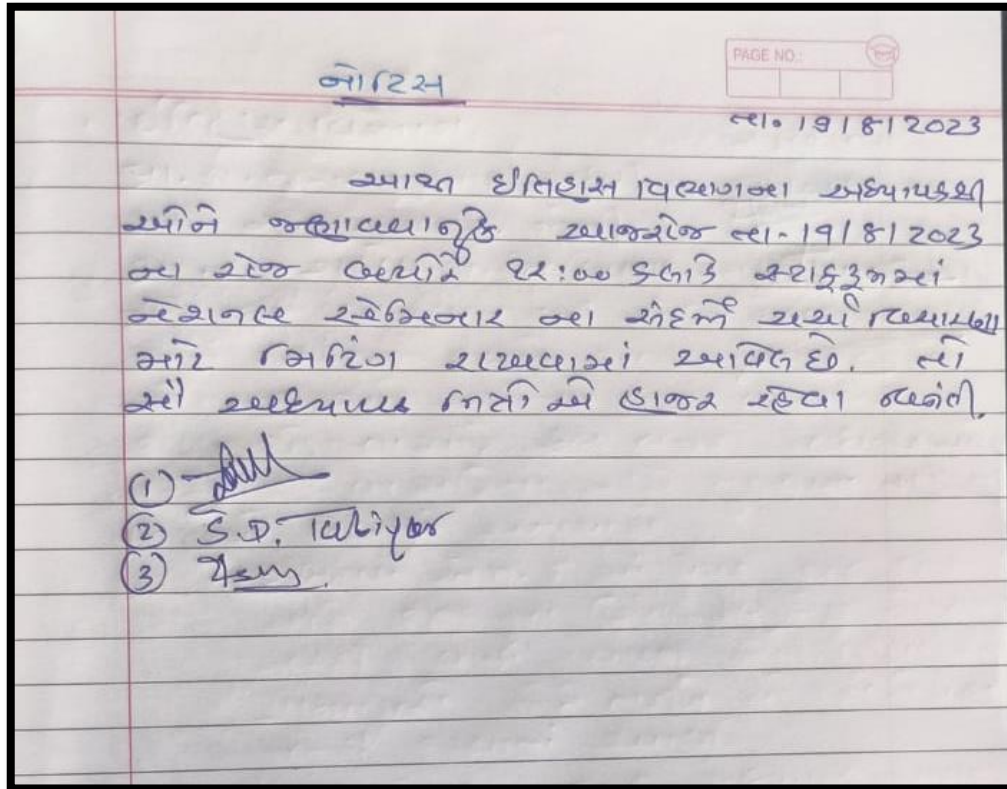 નોટિસ
PAGE NO.:
તા. 19/8/2023
આથી ઈતિહાસ વિભાગના અધ્યાપકશ્રી
ઓને જણાવવાનું કે આજરોજ તા. 19/8/2023
ના રોજ બપોરે ૧૨:૦૦ કલાકે સ્ટાફરૂમમાં
નેશનલ સેમિનાર ના સંદર્ભે ચર્ચા વિચારણા
માટે મિટિંગ રાખવામાં આવેલ છે. તો
સૌ અધ્યાપક મિત્રો એ હાજર રહેવા વિનંતી.
(1)
(2) S.D.
(3)